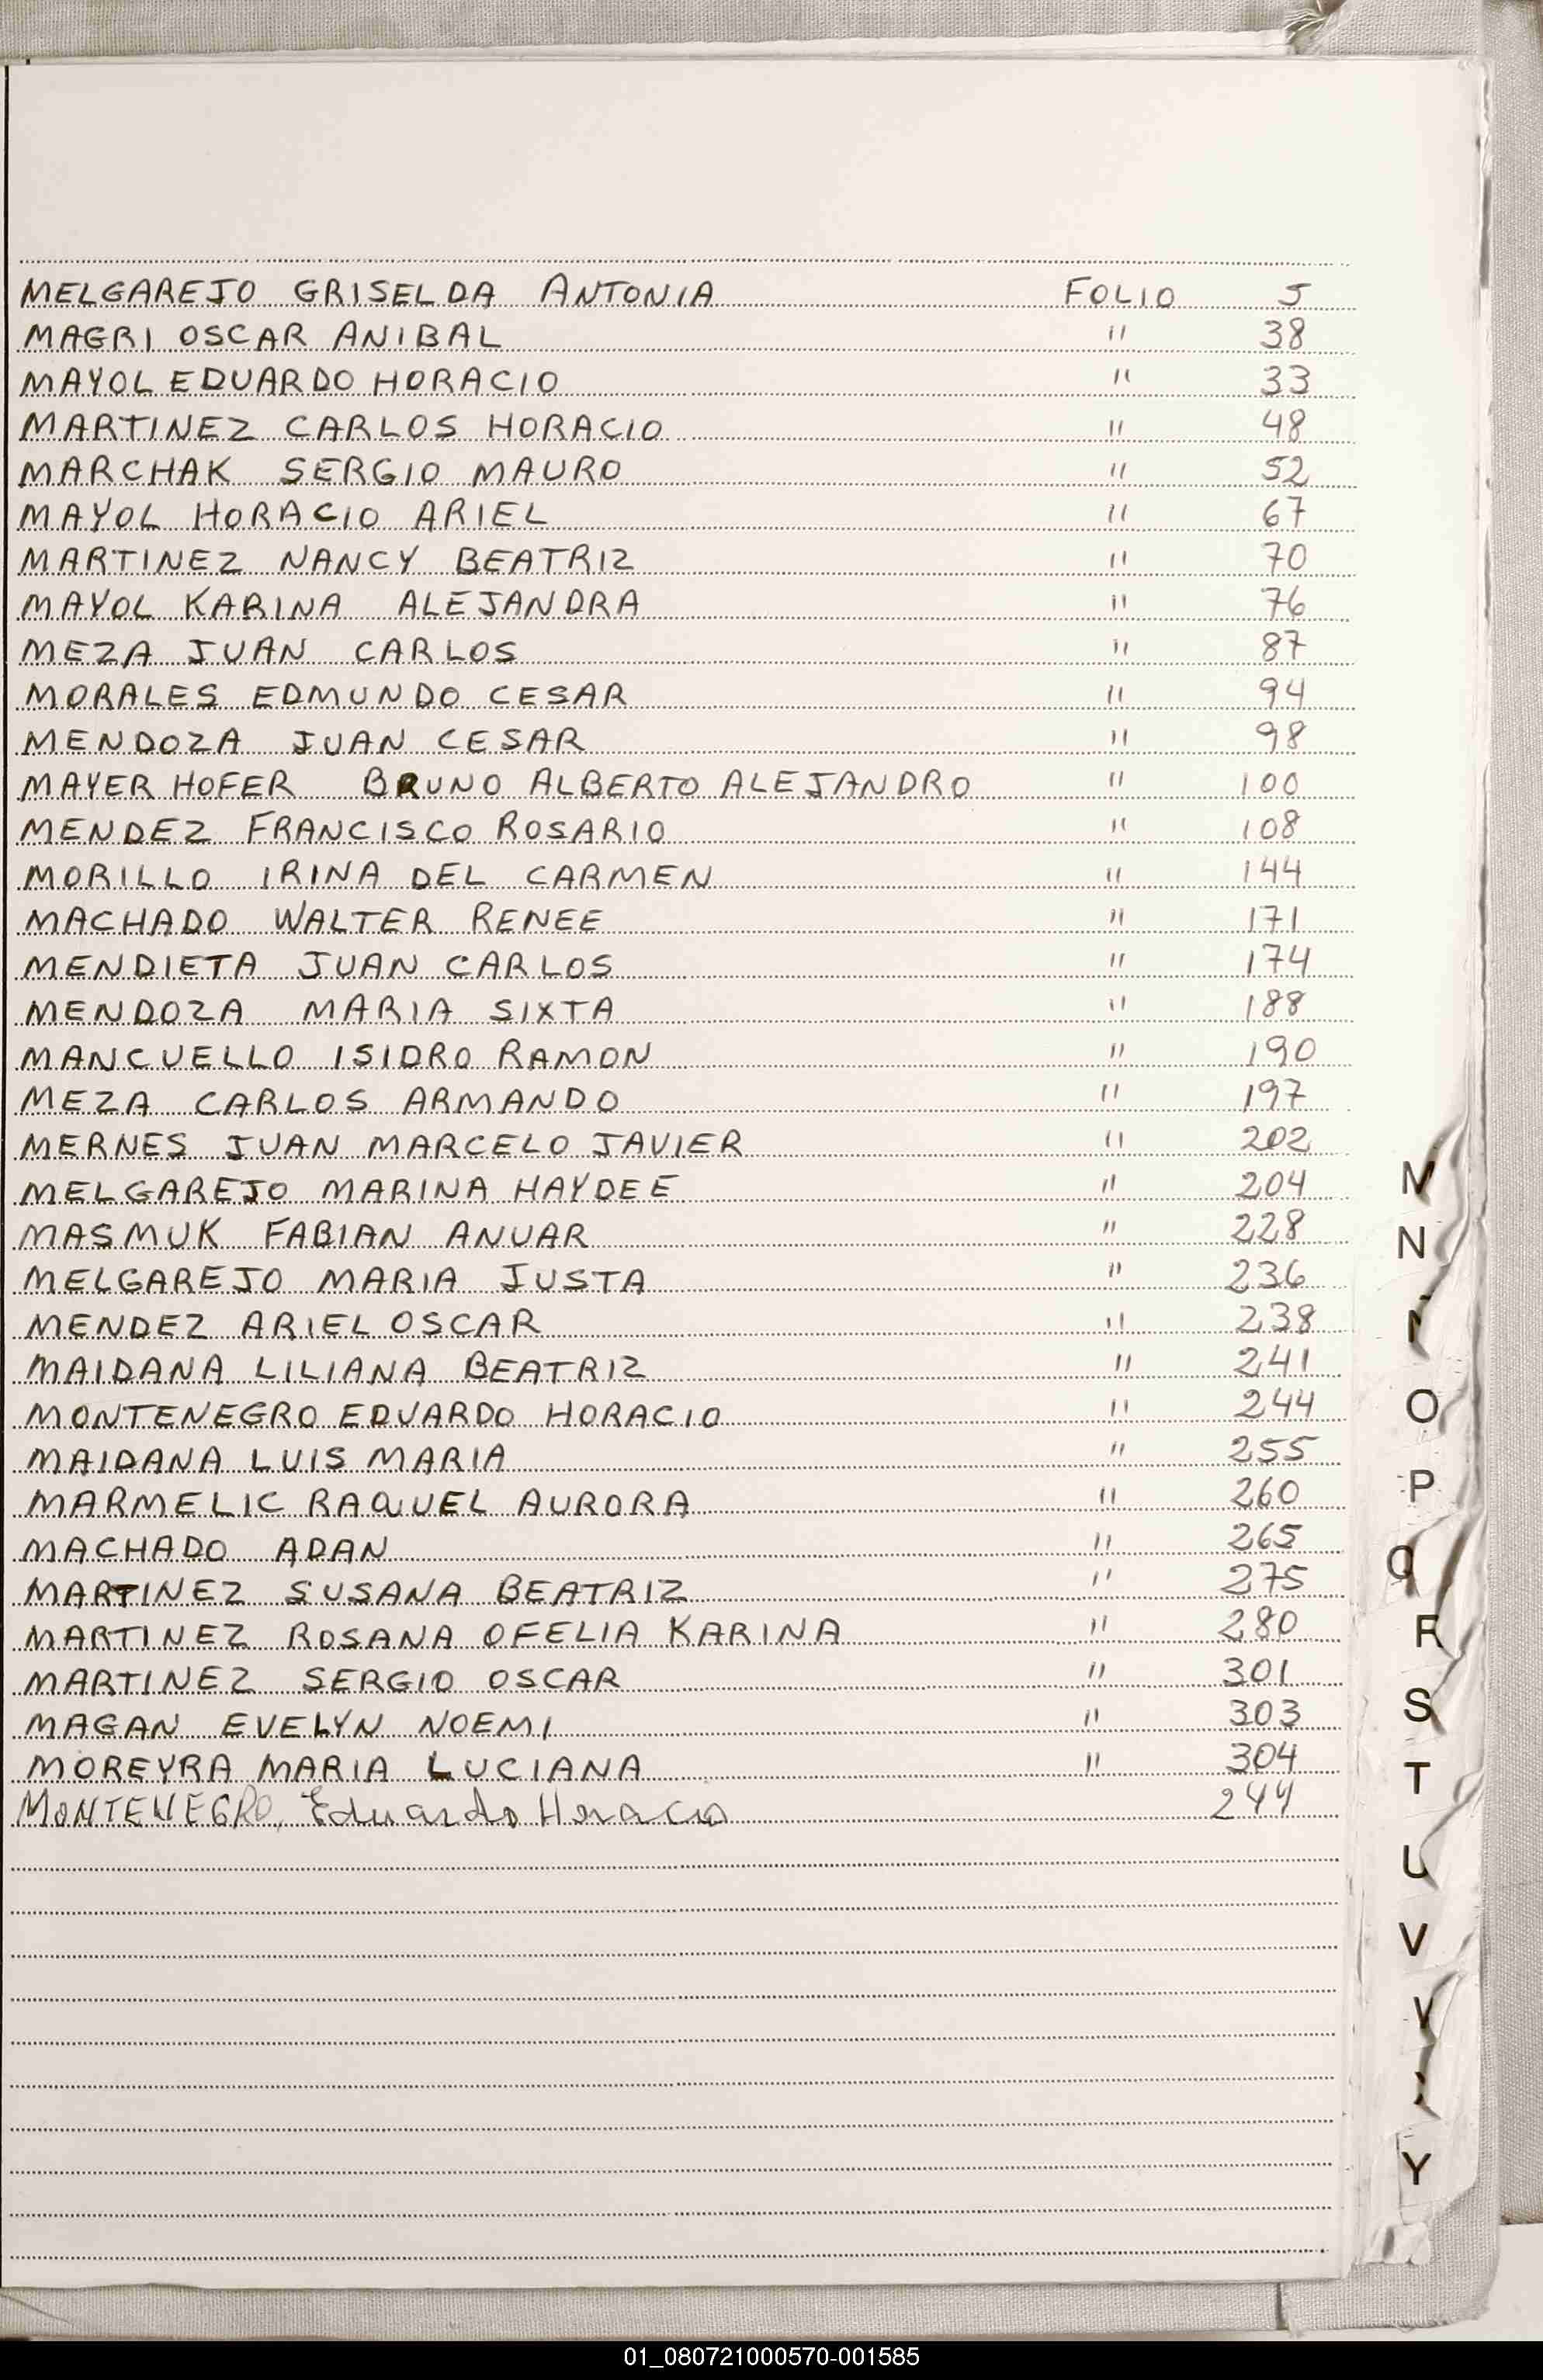 MELGAREJO GRISELDA ANTONIA FOLIO 5
MAGRI OSCAR ANIBAL " 38
MAYOL EDUARDO HORACIO " 33
MARTINEZ CARLOS HORACIO " 48
MARCHAK SERGIO MAURO " 52
MAYOL HORACIO ARIEL " 67
MARTINEZ NANCY BEATRIZ " 70
MAYOL KARINA ALEJANDRA " 76
MEZA JUAN CARLOS " 87
MORALES EDMUNDO CESAR " 94
MENDOZA JUAN CESAR " 98
MAYER HOFER BRUNO ALBERTO ALEJANDRO " 100
MENDEZ FRANCISCO ROSARIO " 108
MORILLO IRINA DEL CARMEN " 144
MACHADO WALTER RENEE " 171
MENDIETA JUAN CARLOS " 174
MENDOZA MARIA SIXTA " 188
MANCUELLO ISIDRO RAMON " 190
MEZA CARLOS ARMANDO " 197
MERNES JUAN MARCELO JAVIER " 202
MELGAREJO MARINA HAYDEE " 204
MASMUK FABIAN ANUAR " 228
MELGAREJO MARIA JUSTA " 236
MENDEZ ARIEL OSCAR " 238
MAIDANA LILIANA BEATRIZ " 241
MONTENEGRO EDUARDO HORACIO " 244
MAIDANA LUIS MARIA " 255
MARMELIC RAQUEL AURORA " 260
MACHADO ADAN " 265
MARTINEZ SUSANA BEATRIZ " 275
MARTINEZ ROSANA OFELIA KARINA " 280
MARTINEZ SERGIO OSCAR " 301
MAGAN EVELYN NOEMI " 303
MOREYRA MARIA LUCIANA " 304
MONTENEGRO, Eduardo Horacio 244
M
N
O
P
Q
R
S
T
U
V
Y
01_080721000570-001585